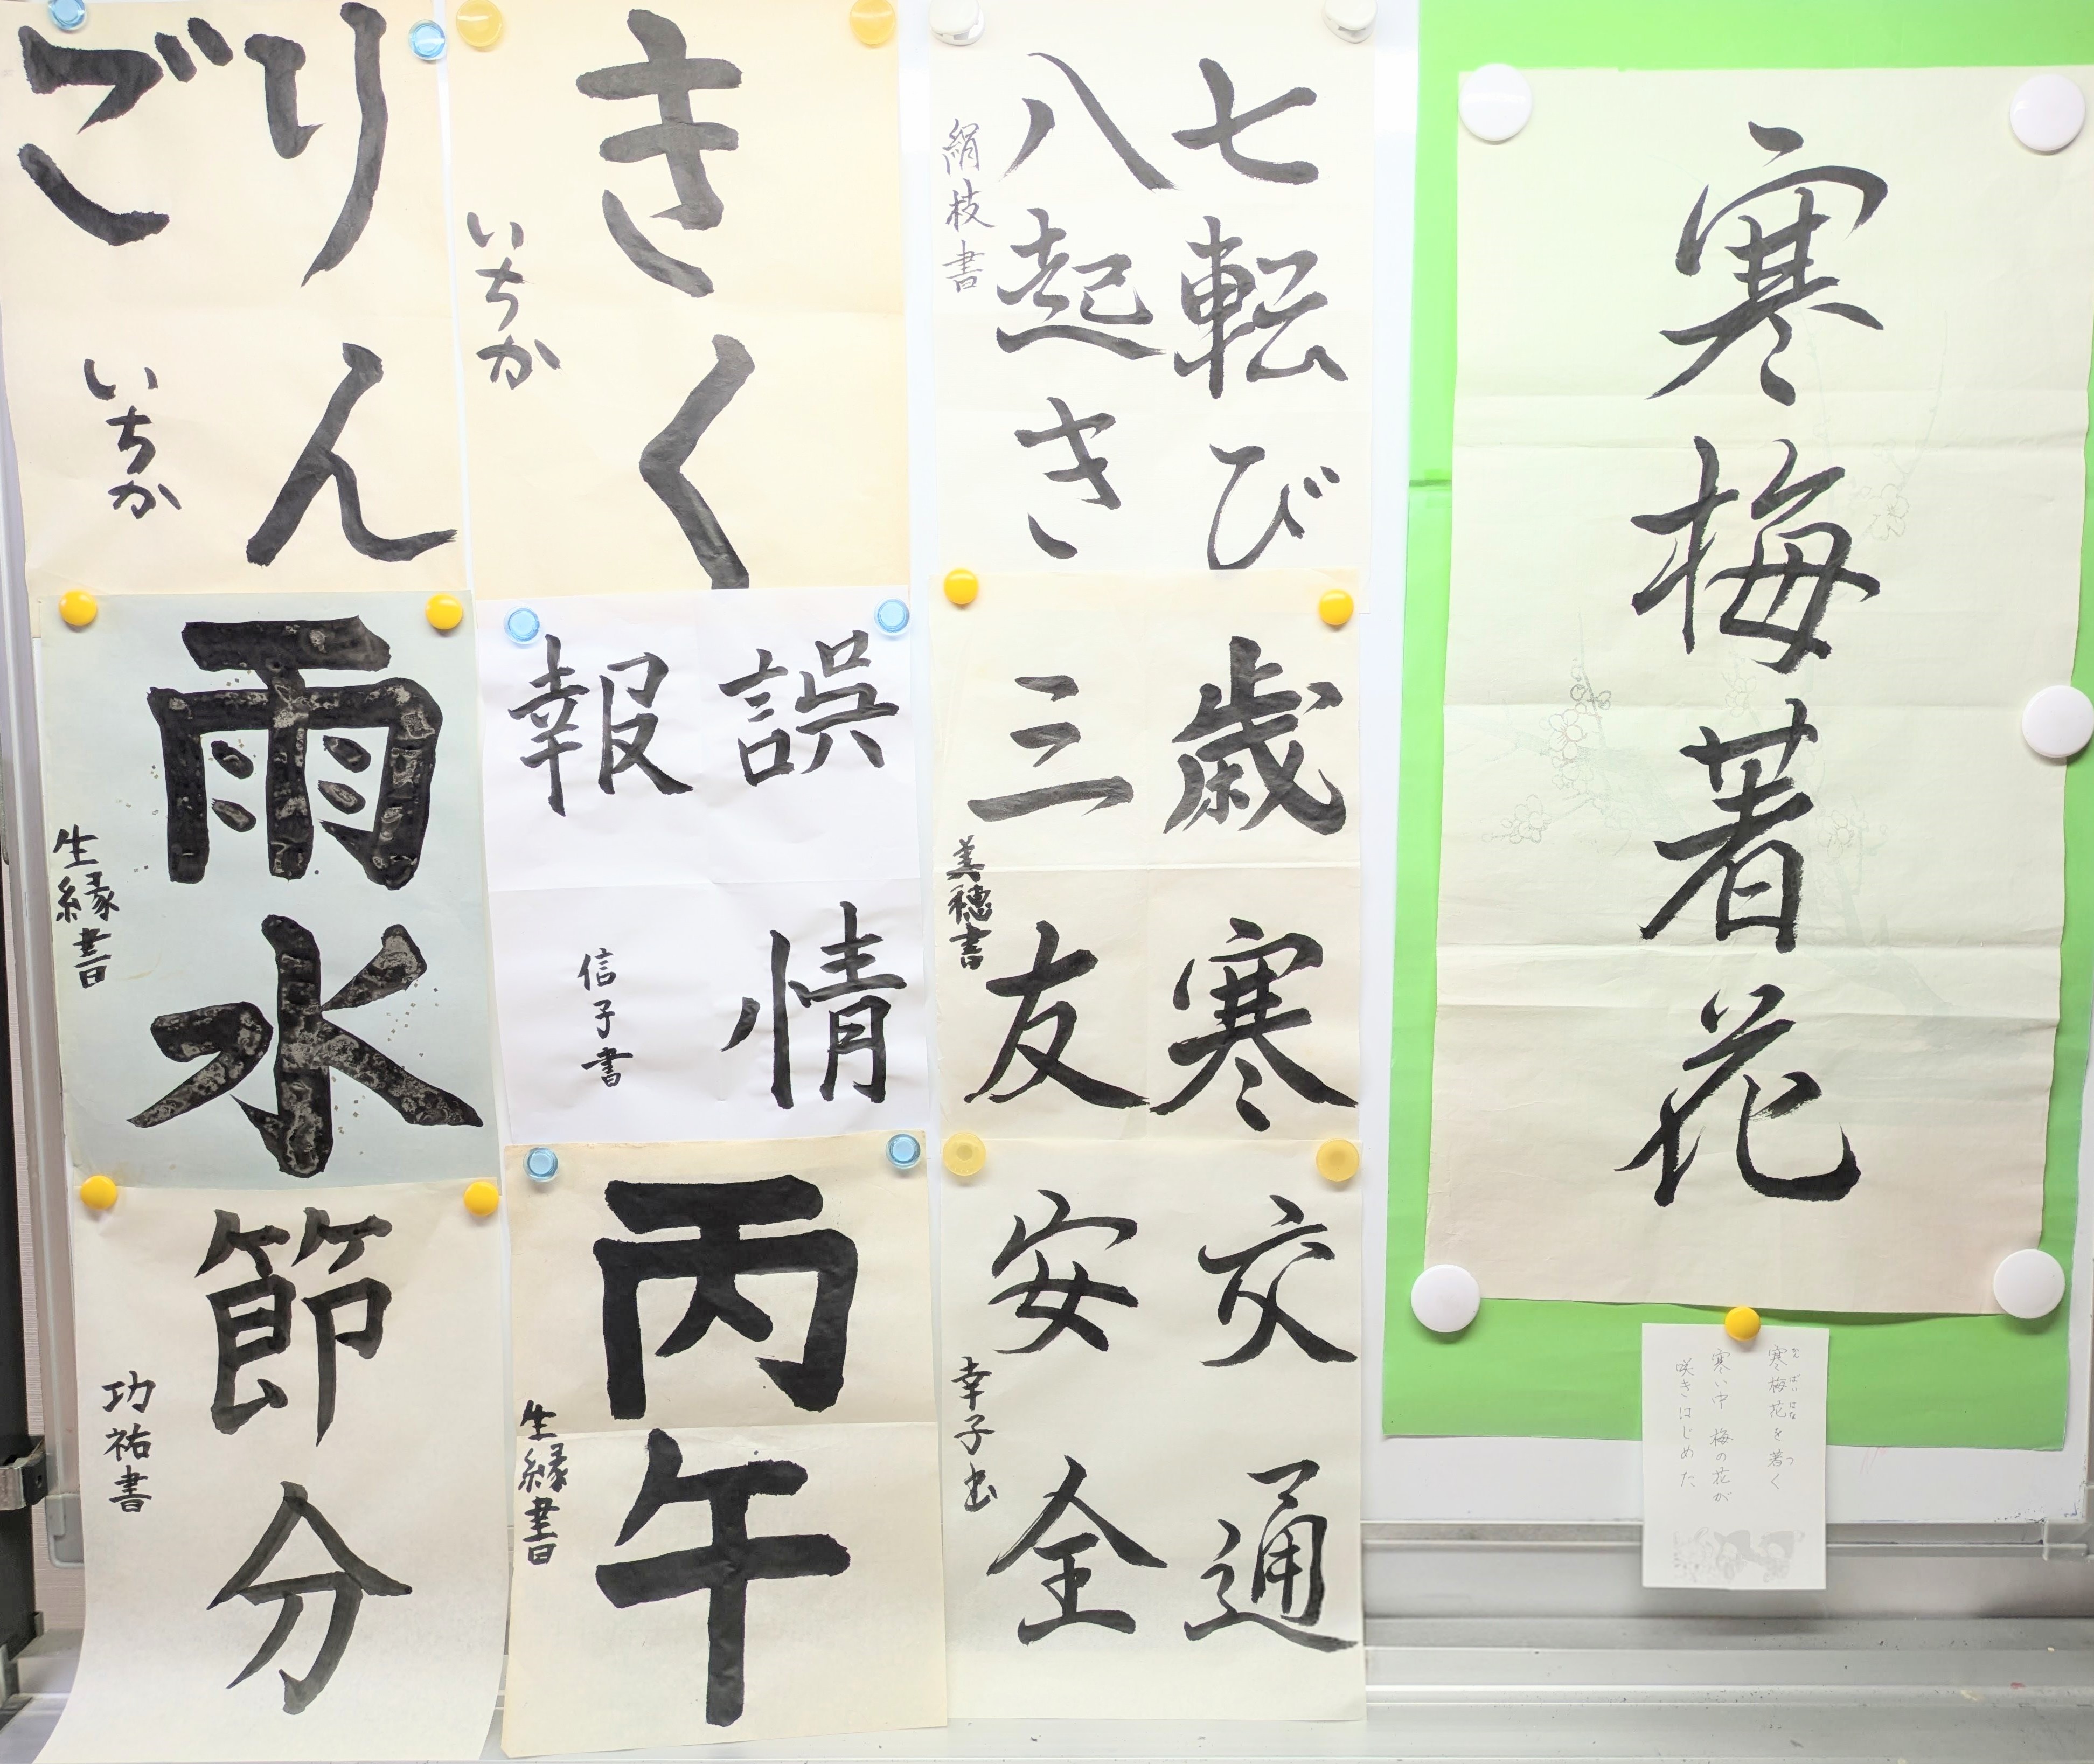 寒梅著花
寒梅花を著く
かんばいはな つ
寒い中 梅の花が
咲きはじめた
七転び
八起き
絹枝書
歳寒
三友
美穂書
交通
安全
幸子出
きく
いちか
誤情
報
信子書
丙午
生縁書
りん
ご
いちか
雨水
生縁書
節分
功祐書